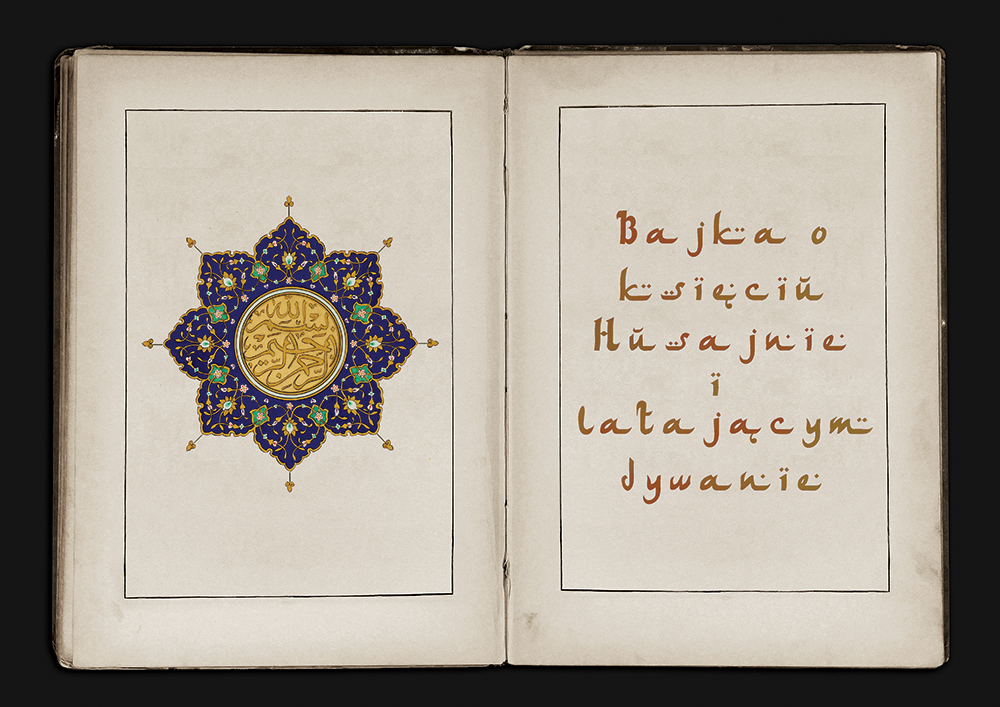 بسم الله
الرحمن الرحيم
Bajka o
księciu
Husajnie
i
latającym
dywanie